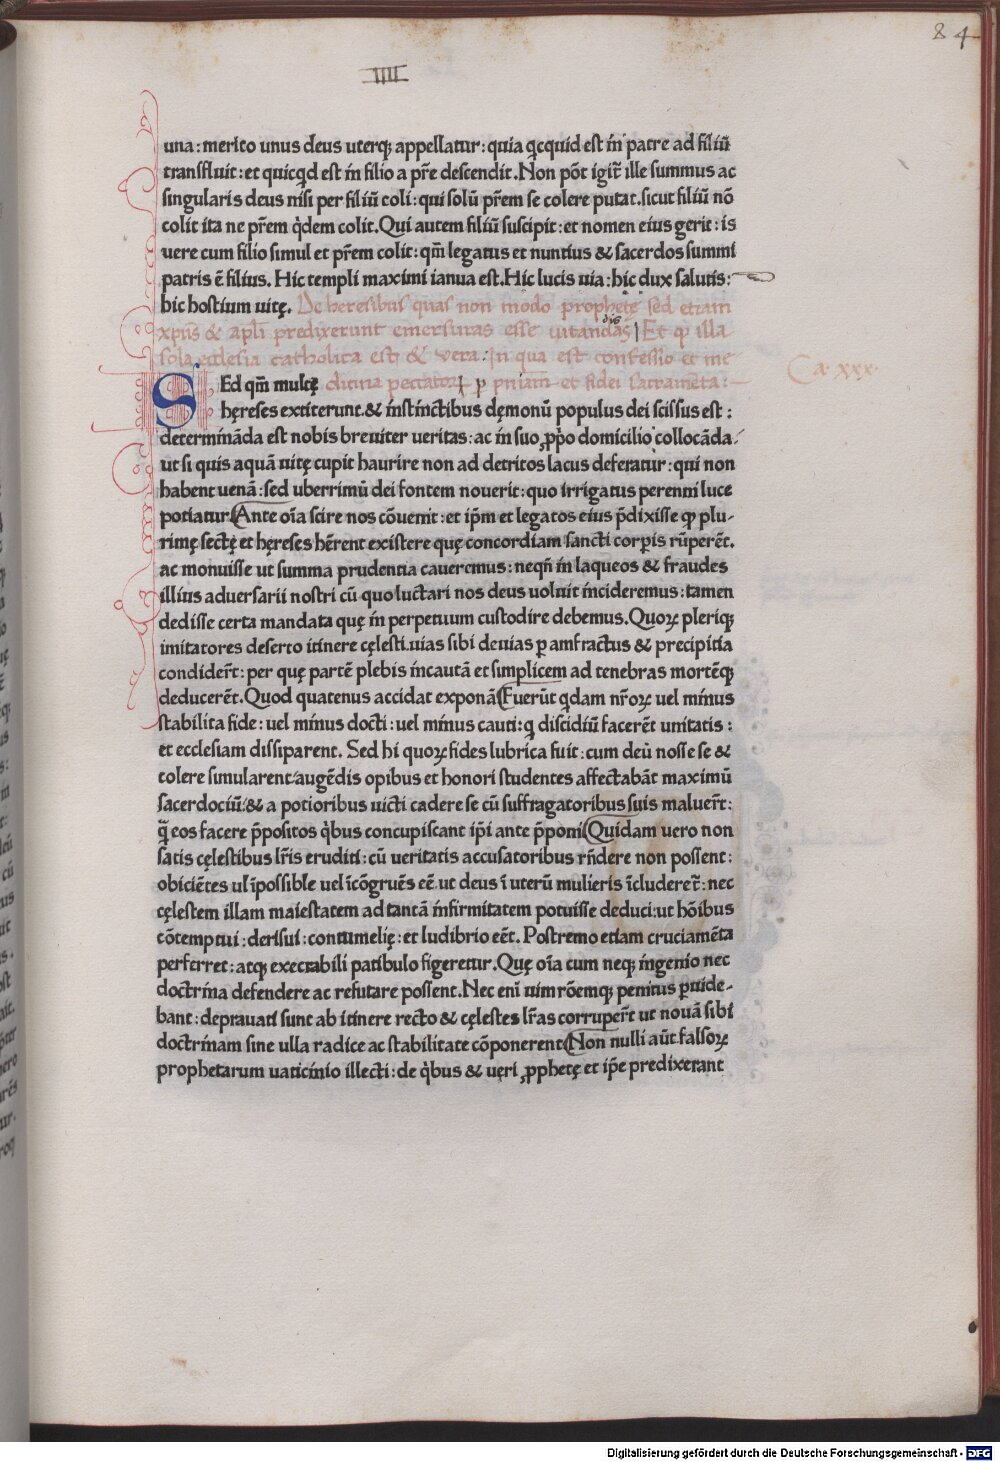 84
IIII
una : merito unus deus uterq; appellatur : quia qcquid est in patre ad filiũ
transfluit : et quicqd est in filio a pr̃e descendit . Non põt igit̃ ille summus ac
singularis deus nisi per filiũ coli : qui solũ pr̃em se colere putat . sicut filiũ nõ
colit ita ne pr̃em q̇dem colit . Qui autem filiũ suscipit : et nomen eius gerit : is
vere cum filio simul et pr̃em colit : qm̃ legatus et nuntius & sacerdos summi
patris ẽ filius . Hic templi maximi ianua est . Hic lucis uia : hic dux salutis :
hic hostium uitę . De heresibus quas non modo prophetę sed etiam
xpũs & apli predixerunt emersuras esse uitandas Et q illa
sola ecclesia catholica est & vera : in qua est confessio et me
Ca xxx
SEd qm̃ multę dicina peccatoꝝ p pniam et fidei sacramẽta :
hęreses extiterunt & instinctibus dęmonũ populus dei scissus est :
determinãda est nobis breviter veritas : ac in suo ꝓp̃o domicilio collocãda
ut si quis aquã uitę cupit haurire non ad detritos lacus deferatur : qui non
habent venã : sed uberrimũ dei fontem noverit : quo irrigatus perenni luce
potiatur . Ante oĩa scire nos cõvenit : et ip̃m et legatos eius p̃dixisse ꝙ plu-
rimę sectę et hęreses hr̃ent existere quę concordiam sancti corꝑis rũperẽt .
ac monuisse ut summa prudentia caveremus : neqñ in laqueos & fraudes
illius adversarii nostri cũ quo luctari nos deus voluit incideremus : tamen
dedisse certa mandata quę in perpetuum custodire debemus . Quoꝝ pleriq;
imitatores deserto itinere cęlesti . uias sibi devias ꝑ amfractus & precipitia
condider̃t : per quę partẽ plebis incautã et simplicem ad tenebras mortẽq;
deducerẽt . Quod quatenus accidat exponã Fuerũt qdam nr̃oꝝ vel minus
stabilita fide : vel minus docti : vel minus cauti : q discidiũ facerẽt unitatis :
et ecclesiam dissiparent . Sed hi quoꝝ fides lubrica fuit : cum deũ nosse se &
colere simularent : augẽdis opibus et honori studentes affectabãt maximũ
sacerdociũ : & a potioribus uicti cadere se cũ suffragatoribus suis maluer̃t :
q̃ eos facere p̃positos q̇bus concupiscant ip̃i ante p̃poni Quidam vero non
satis cęlestibus lr̃is eruditi : cũ veritatis accusatoribus rñdere non possent :
obiciẽtes vl ĩpossible vel ĩcõgruẽs eẽ ut deus ĩ uterũ mulieris ĩcluderet̃ : nec
cęlestem illam maiestatem ad tantã infirmitatem potuisse deduci : ut hõibus
cõtemptui : derisui : contumelię : et ludibrio eẽt . Postremo etiam cruciamẽta
perferret : atq; execrabili patibulo figeretur . Quę oĩa cum neq; ingenio nec
doctrina defendere ac refutare possent . Nec enĩ uim rõemq; penitus ꝑuide-
bant : depravati sunt ab itinere recto & cęlestes lr̃as corruper̃t ut novã sibi
doctrinam sine ulla radice ac stabilitate cõponerent Non nulli aũt falsoꝝ
prophetarum vaticinio illecti : de q̇bus & ueri ꝓphetę et ip̃e predixerant
Digitalisierung gefördert durch die Deutsche Forschungsgemeinschaft - DFG